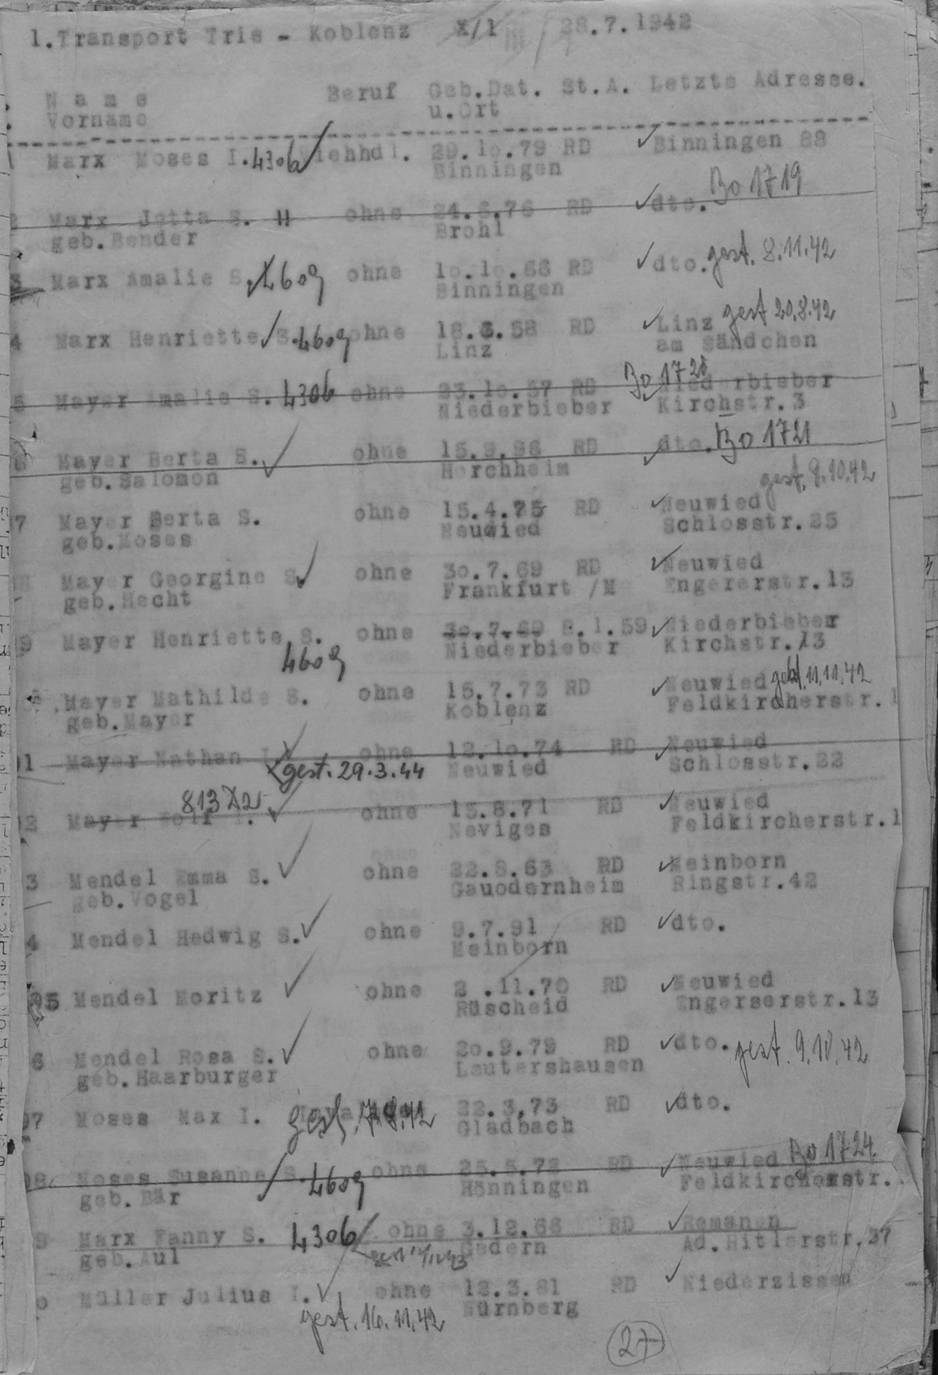 1.Transport Trie - Koblenz X/1 28.7.1942
Name Beruf Geb.Dat. St.A. Letzte Adresse.
Vorname u.Ort
Marx Moses I. 4306 Viehhdl. 29.10.79 RD Binningen 88
Binningen
2 Marx Jetta S. 11 ohne 24.6.76 RD dto. Bo 1719
geb.Bender Brohl
3 Marx Amalie S. 460g ohne 10.10.66 RD dto. gest. 8.11.42
Binningen
4 Marx Henriette S. 460g ohne 18.6.58 RD Linz gest 20.8.42
Linz am Sändchen
5 Mayer Amalie S. 4306 ohne 23.10.57 RD Niederbieber
Niederbieber Kirchstr.3
6 Mayer Berta S. ohne 15.9.98 RD dto. Bo 1721
geb.Salomon Horchheim
gest. 8.10.42
7 Mayer Berta S. ohne 15.4.75 RD Neuwied
geb.Moses Neuwied Schlosstr.25
Mayer Georgine S. ohne 30.7.69 RD Neuwied
geb.Hecht Frankfurt /M Engererstr.13
9 Mayer Henriette S. ohne 30.7.69 8.1.59 Niederbieber
460g Niederbieber Kirchstr.13
Mayer Mathilde S. ohne 15.7.73 RD Neuwied 11.11.42
geb.Mayer Koblenz Feldkircherstr.1
1 Mayer Nathan I. ohne 12.10.74 RD Neuwied
gest. 29.3.44 Neuwied Schlosstr.22
813
2 Mayer Wolf I. ohne 15.8.71 RD Neuwied
Neviges Feldkircherstr.1
3 Mendel Emma S. ohne 22.8.63 RD Meinborn
geb.Vogel Gauodernheim Ringstr.42
4 Mendel Hedwig S. ohne 9.7.91 RD dto.
Meinborn
5 Mendel Moritz ohne 2.11.70 RD Neuwied
Rüscheid Engerserstr.13
6 Mendel Rosa S. ohne 20.9.79 RD dto. gest. 9.10.42
geb.Haarburger Leutershausen
7 Moses Max I. 22.3.73 RD dto.
Gladbach
8 Moses Susanne S. 460g ohne 25.5.72 RD Neuwied Bo 1724
geb.Bär Hönningen
9 Marx Fanny S. 4306 ohne 3.12.66 RD Remagen
geb.Aul Gedern Ad.Hitlerstr.37
Müller Julius I. ohne 12.3.81 RD Niederzissen
gest. 16.11.42 Nürnberg
27